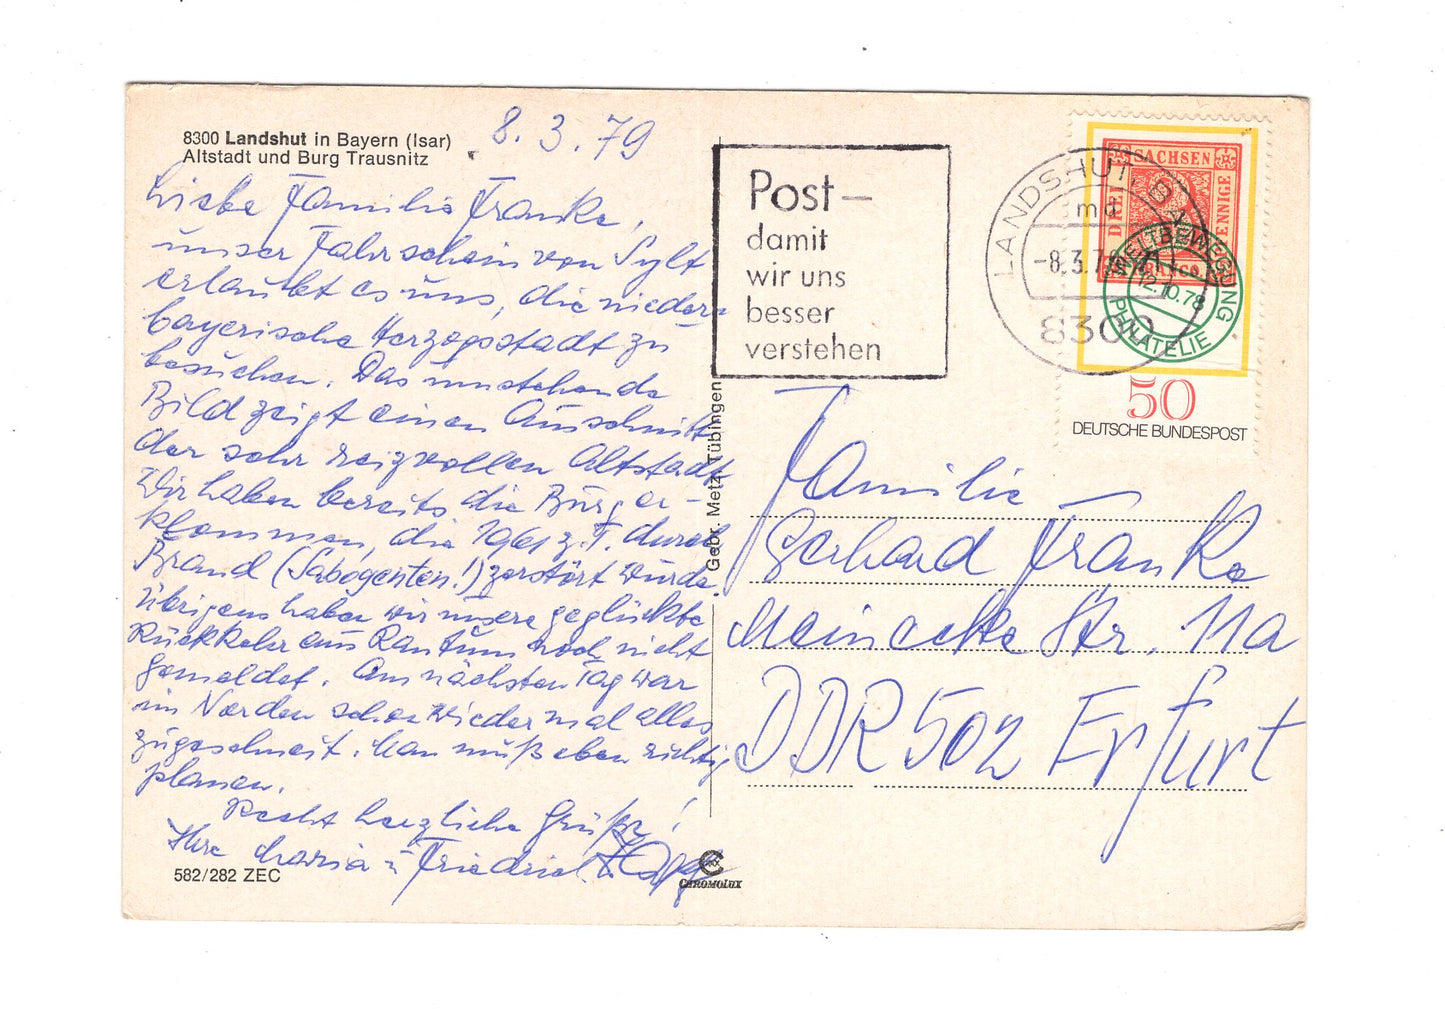 8300 Landshut in Bayern (Isar)
Altstadt und Burg Trausnitz
8.3.79
Liebe Familie Franke,
unser Fahrschein von Sylt
erlaubt es uns, die nieder-
bayerische Herzogsstadt zu
besuchen. Das umstehende
Bild zeigt einen Ausschnitt
der sehr reizvollen Altstadt.
Wir haben bereits die Burg er-
klommen, die 1961 z.T. durch
Brand (Sabogenten!) zerstört wurde
übrigens haben wir unsere geglückte
Rückkehr aus Rantum noch nicht
gemeldet. Am nächsten Tag war
im Norden schon wieder mal alles
zugeschneit. Man muß eben richtig
planen.
Recht herzliche Grüße!
Ihre Maria u. Friedrich
582/282 ZEC
Gebr. Metz, Tübingen
CHROMOLUX
Post –
damit
wir uns
besser
verstehen
LANDSHUT, BAY
md
-8.3.79
8300
SACHSEN
DREI PFENNIGE
FRANCO
WELTBEWEGUNG
12.10.78
PHILATELIE
50
DEUTSCHE BUNDESPOST
Familie
Gerhard Franke
Meinecke Str. 11a
DDR 502 Erfurt